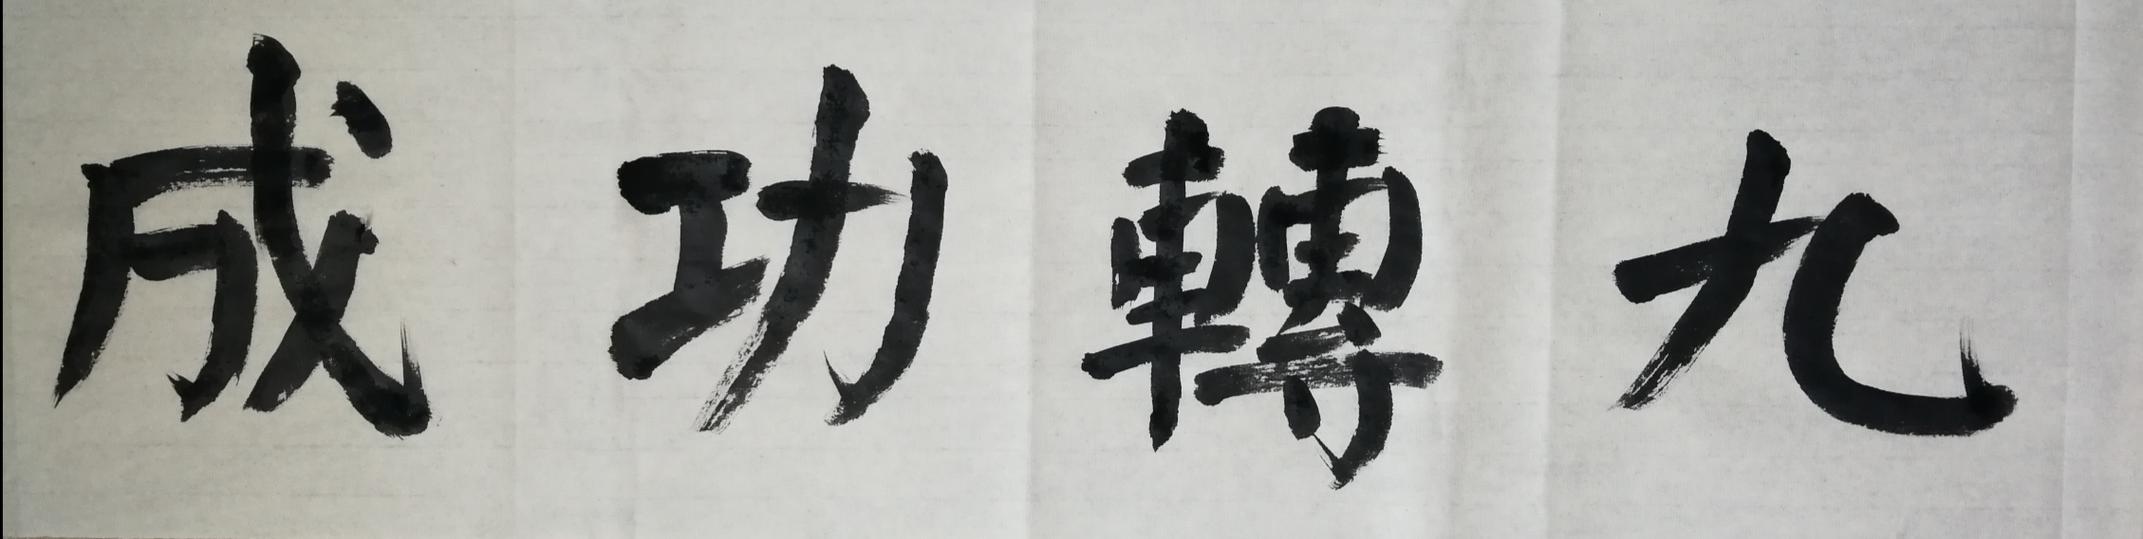 九轉功成